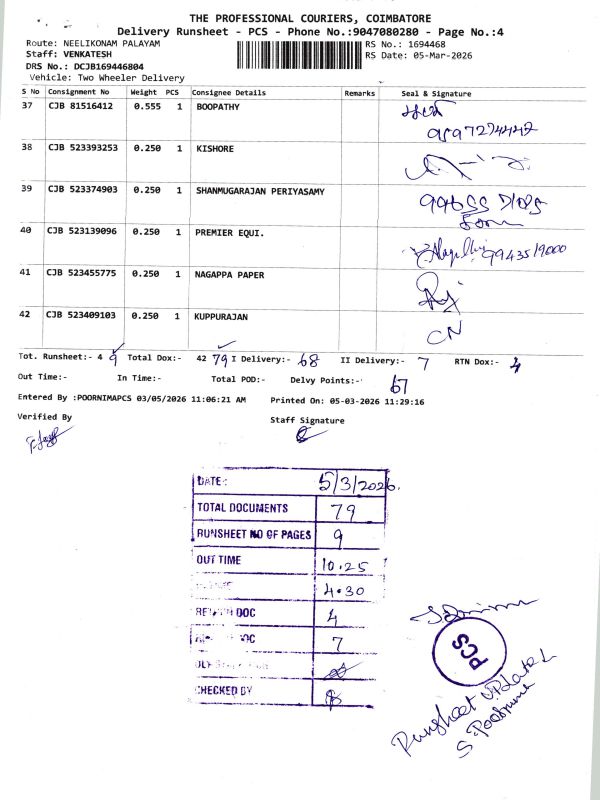 THE PROFESSIONAL COURIERS, COIMBATORE
Delivery Runsheet - PCS - Phone No.:9047080280 - Page No.:4
Route: NEELIKONAM PALAYAM
RS No.: 1694468
Staff: VENKATESH
RS Date: 05-Mar-2026
DRS No.: DCJB169446804
Vehicle: Two Wheeler Delivery
S No Consignment No Weight PCS Consignee Details Remarks Seal & Signature
37 CJB 81516412 0.555 1 BOOPATHY
38 CJB 523393253 0.250 1 KISHORE
39 CJB 523374903 0.250 1 SHANMUGARAJAN PERIYASAMY
40 CJB 523139096 0.250 1 PREMIER EQUI.
41 CJB 523455775 0.250 1 NAGAPPA PAPER
42 CJB 523409103 0.250 1 KUPPURAJAN
CN
Tot. Runsheet:- 4 9 Total Dox:- 42 79 I Delivery:- 68 II Delivery:- 7 RTN Dox:- 4
Out Time:- In Time:- Total POD:- Delvy Points:- 67
Entered By :POORNIMAPCS 03/05/2026 11:06:21 AM Printed On: 05-03-2026 11:29:16
Verified By Staff Signature
DATE: 5/3/2026.
TOTAL DOCUMENTS 79
RUNSHEET NO OF PAGES 9
OUT TIME 10.25
4.30
DOC 4
7
CHECKED BY
PCS
Runsheet
S. Poornima